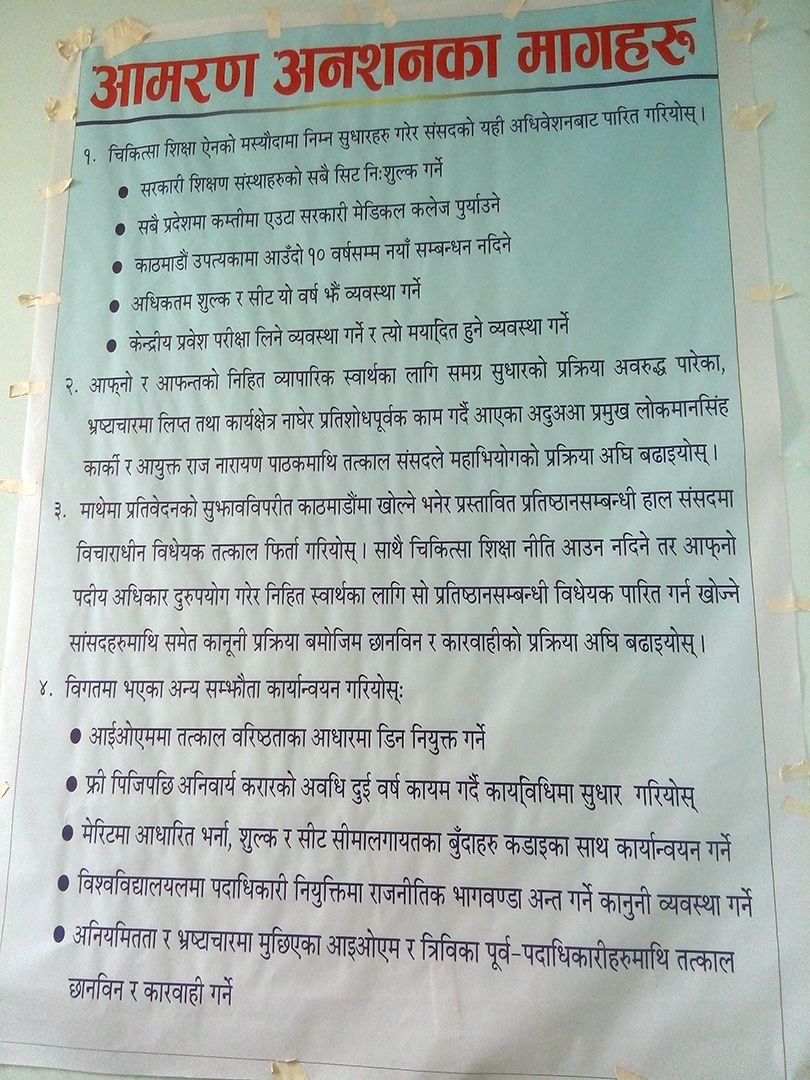 आमरण अनशनका मागहरू
१. चिकित्सा शिक्षा ऐनको मस्यौदामा निम्न सुधारहरु गरेर संसदको यही अधिवेशनबाट पारित गरियोस् ।
● सरकारी शिक्षण संस्थाहरुको सबै सिट निःशुल्क गर्ने
● सबै प्रदेशमा कम्तीमा एउटा सरकारी मेडिकल कलेज पुर्याउने
● काठमाडौं उपत्यकामा आउँदो १० वर्षसम्म नयाँ सम्बन्धन नदिने
● अधिकतम शुल्क र सीट यो वर्ष झैं व्यवस्था गर्ने
● केन्द्रीय प्रवेश परीक्षा लिने व्यवस्था गर्ने र त्यो मर्यादित हुने व्यवस्था गर्ने
२. आफ्नो र आफन्तको निहित व्यापारिक स्वार्थका लागि समग्र सुधारको प्रक्रिया अवरुद्ध पारेका,
भ्रष्टाचारमा लिप्त तथा कार्यक्षेत्र नाघेर प्रतिशोधपूर्वक काम गर्दै आएका अदुअआ प्रमुख लोकमानसिंह
कार्की र आयुक्त राज नारायण पाठकमाथि तत्काल संसदले महाभियोगको प्रक्रिया अघि बढाइयोस् ।
३. माथेमा प्रतिवेदनको सुझावविपरीत काठमाडौंमा खोल्ने भनेर प्रस्तावित प्रतिष्ठानसम्बन्धी हाल संसदमा
विचाराधीन विधेयक तत्काल फिर्ता गरियोस् । साथै चिकित्सा शिक्षा नीति आउन नदिने तर आफ्नो
पदीय अधिकार दुरुपयोग गरेर निहित स्वार्थका लागि सो प्रतिष्ठानसम्बन्धी विधेयक पारित गर्न खोज्ने
सांसदहरुमाथि समेत कानूनी प्रक्रिया बमोजिम छानविन र कारवाहीको प्रक्रिया अघि बढाइयोस् ।
४. विगतमा भएका अन्य सम्झौता कार्यान्वयन गरियोस्ः
● आईओएममा तत्काल वरिष्ठताका आधारमा डिन नियुक्त गर्ने
● फ्री पिजिपछि अनिवार्य करारको अवधि दुई वर्ष कायम गर्दै कार्यविधिमा सुधार गरियोस्
● मेरिटमा आधारित भर्ना, शुल्क र सीट सीमालगायतका बुँदाहरु कडाइका साथ कार्यान्वयन गर्ने
● विश्वविद्यालयलमा पदाधिकारी नियुक्तिमा राजनीतिक भागवण्डा अन्त गर्ने कानुनी व्यवस्था गर्ने
● अनियमितता र भ्रष्टाचारमा मुछिएका आइओएम र त्रिविका पूर्व-पदाधिकारीहरुमाथि तत्काल
छानविन र कारवाही गर्ने